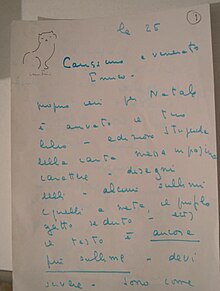 1
le 25
Carissimo e venerato
Enrico -
proprio ieri per Natale
è arrivato il tuo
libro - edizione stupenda
bella carta messa in pagina
carattere - disegni
belli - alcuni sublimi
(quelli a metà, e proprio
gatto seduto) - 
il testo è ancora
più sublime - devi
scrivere - sono come